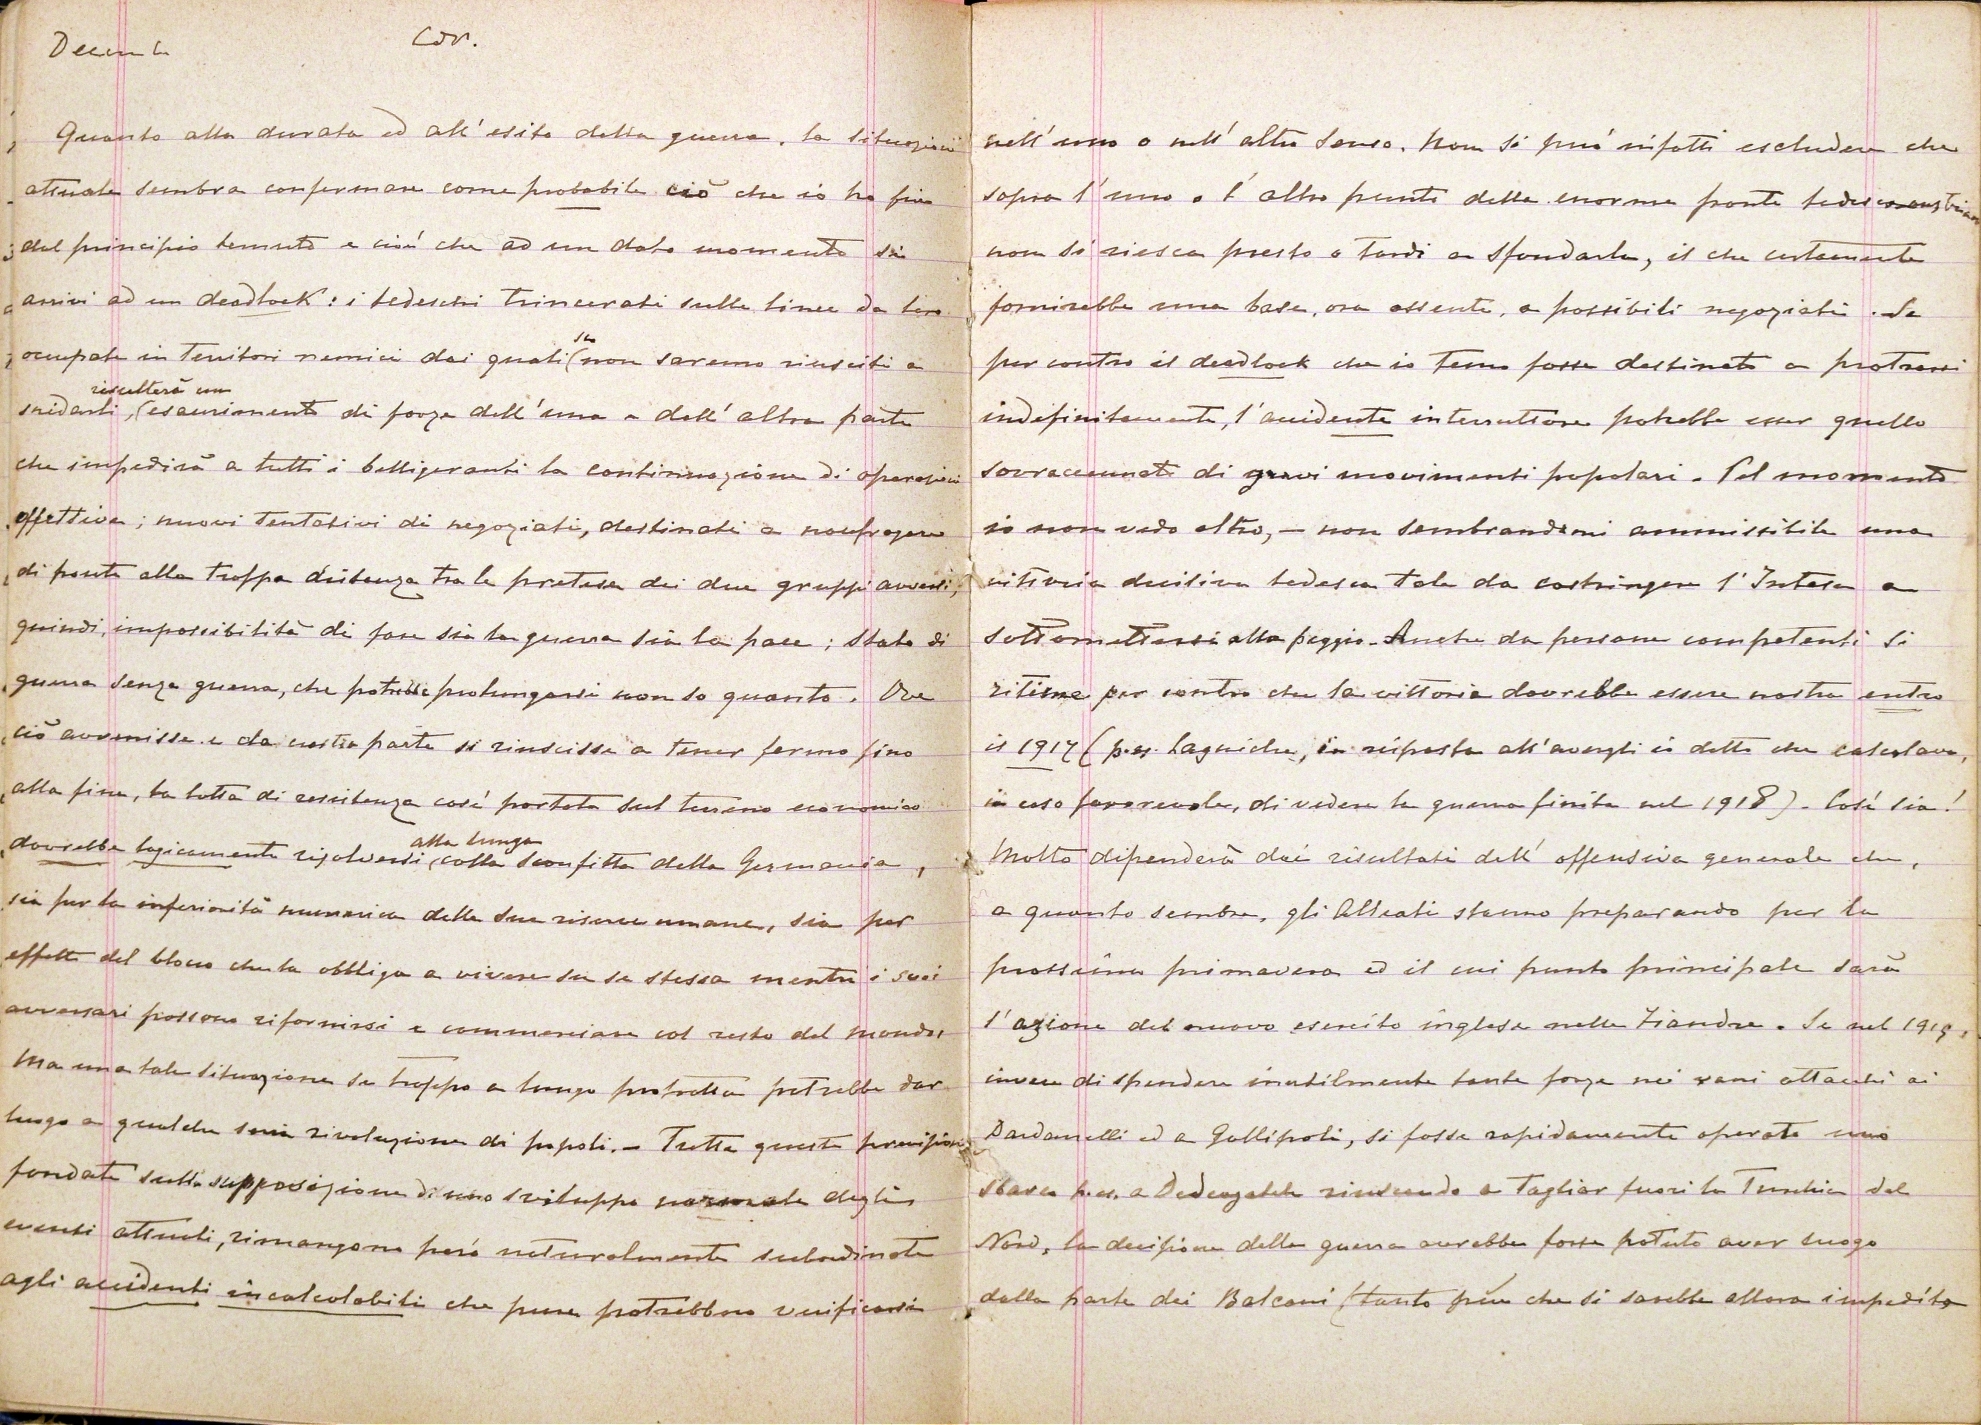 Decemb
Cor.
Quanto alla durata ed all'esito della guerra, la situazione
attuale sembra confermare come probabile ciò che io ho fin
dal principio temuto e cioè che ad un dato momento si
arrivi ad un deadlock: i tedeschi trincerati sulle linee da loro
occupate in territori nemici dai quali (non saremo riusciti a
se
snidarli, (esaurimento di forze dell'una e dell'altra parte
risulterà un
che impedirà a tutti i belligeranti la continuazione di operazioni
effettive; nuovi tentativi di negoziati, destinati a naufragare
di fronte alla troppa distanza tra le pretese dei due gruppi avversi;
quindi, impossibilità di fare sia la guerra sia la pace; stato di
guerra senza guerra, che potrebbe prolungarsi non so quanto. Ove
ciò avvenisse e da nostra parte si riuscisse a tener fermo fino
alla fine, la lotta di resistenza così portata sul terreno economico
dovrebbe logicamente risolversi (colla sconfitta della Germania,
alla lunga
sia per la inferiorità numerica delle sue risorse umane, sia per
effetto del blocco che la obbliga a vivere su se stessa mentre i suoi
avversari possono rifornirsi e commerciare col resto del mondo.
Ma una tale situazione se troppo a lungo protratta potrebbe dar
luogo a qualche seria rivoluzione di popoli. - Tutte queste previsioni
fondate sulla supposizione di uno sviluppo normale degli
eventi attuali, rimangono però naturalmente subordinate
agli accidenti incalcolabili che pure potrebbero verificarsi
nell'uno o nell'altro senso. Non si può infatti escludere che
sopra l'uno o l'altro punto della enorme fronte tedesco-austriaca
non si riesca presto o tardi a sfondarla, il che certamente
fornirebbe una base, ora assente, a possibili negoziati. Se
per contro il deadlock che io temo fosse destinato a protrarsi
indefinitamente, l'accidente interruttore potrebbe esser quello
sovraccennato di gravi movimenti popolari. Pel momento
io non vedo altro, - non sembrandomi ammissibile una
vittoria decisiva tedesca tale da costringere l'Intesa a
sottomettersi alla peggio. Anche da persone competenti si
ritiene per contro che la vittoria dovrebbe essere nostra entro
il 1917 (p. es. Laguiche, in risposta all'avergli io detto che calcolavo,
in caso favorevole, di vedere la guerra finita nel 1918). Così sia!
Molto dipenderà dai risultati dell'offensiva generale che,
a quanto sembra, gli Alleati stanno preparando per la
prossima primavera ed il cui punto principale sarà
l'azione del nuovo esercito inglese nelle Fiandre. Se nel 1915,
invece di spendere inutilmente tante forze nei vani attacchi ai
Dardanelli ed a Gallipoli, si fosse rapidamente operato uno
sbarco p. es. a Dedeagatch riuscendo a tagliar fuori la Turchia dal
Nord, la decisione della guerra avrebbe forse potuto aver luogo
dalla parte dei Balcani (tanto più che si sarebbe allora impedito